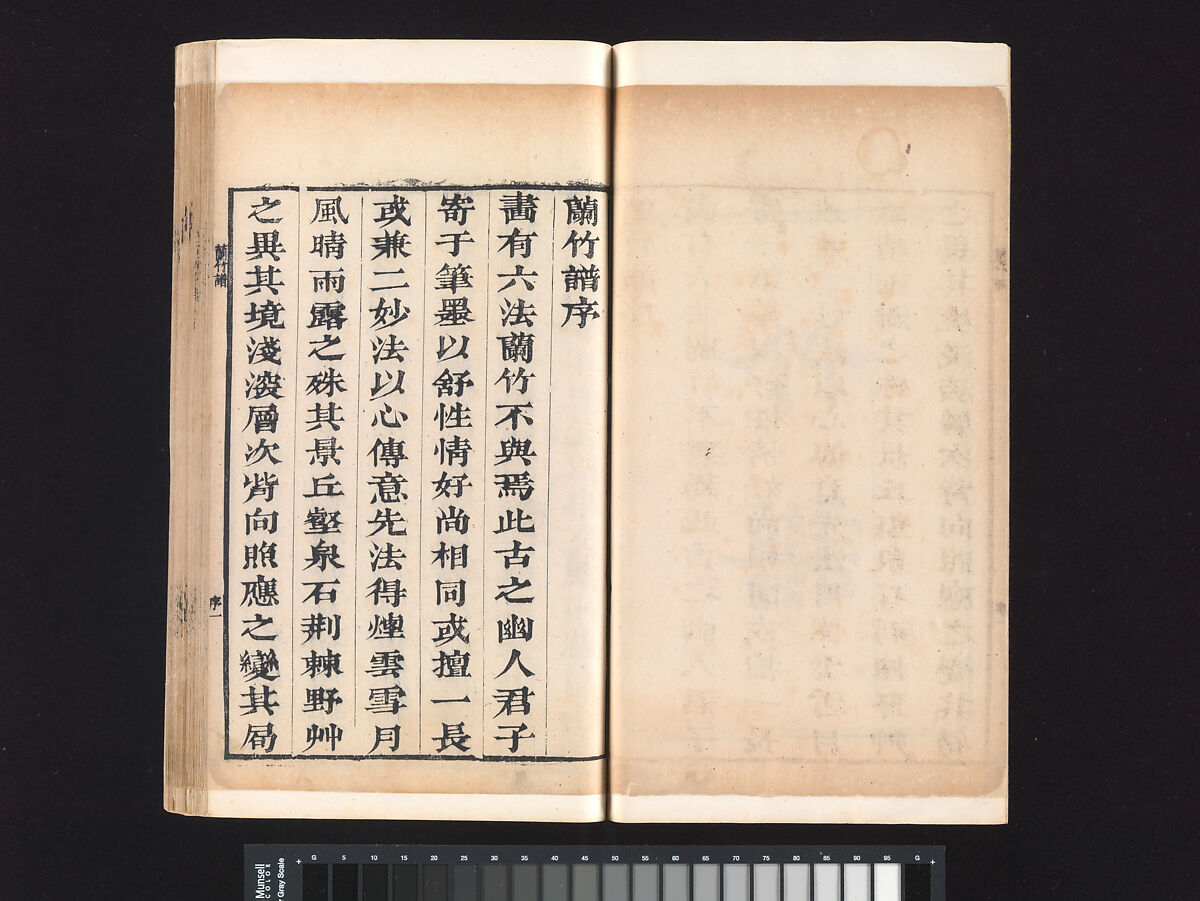 蘭竹譜序
畵有六法蘭竹不與焉此古之幽人君子
寄于筆墨以舒性情好尚相同或擅一長
或兼二妙法以心傳意先法得煙雲雪月
風晴雨露之殊其景丘壑泉石荆棘野艸
之異其境淺深層次背向照應之變其局
蘭竹譜
序一
Munsell COLOR
Gray Scale
G 5 10 15 20 25 30 35 40 45 50 55 60 65 70 75 80 85 90 95 G